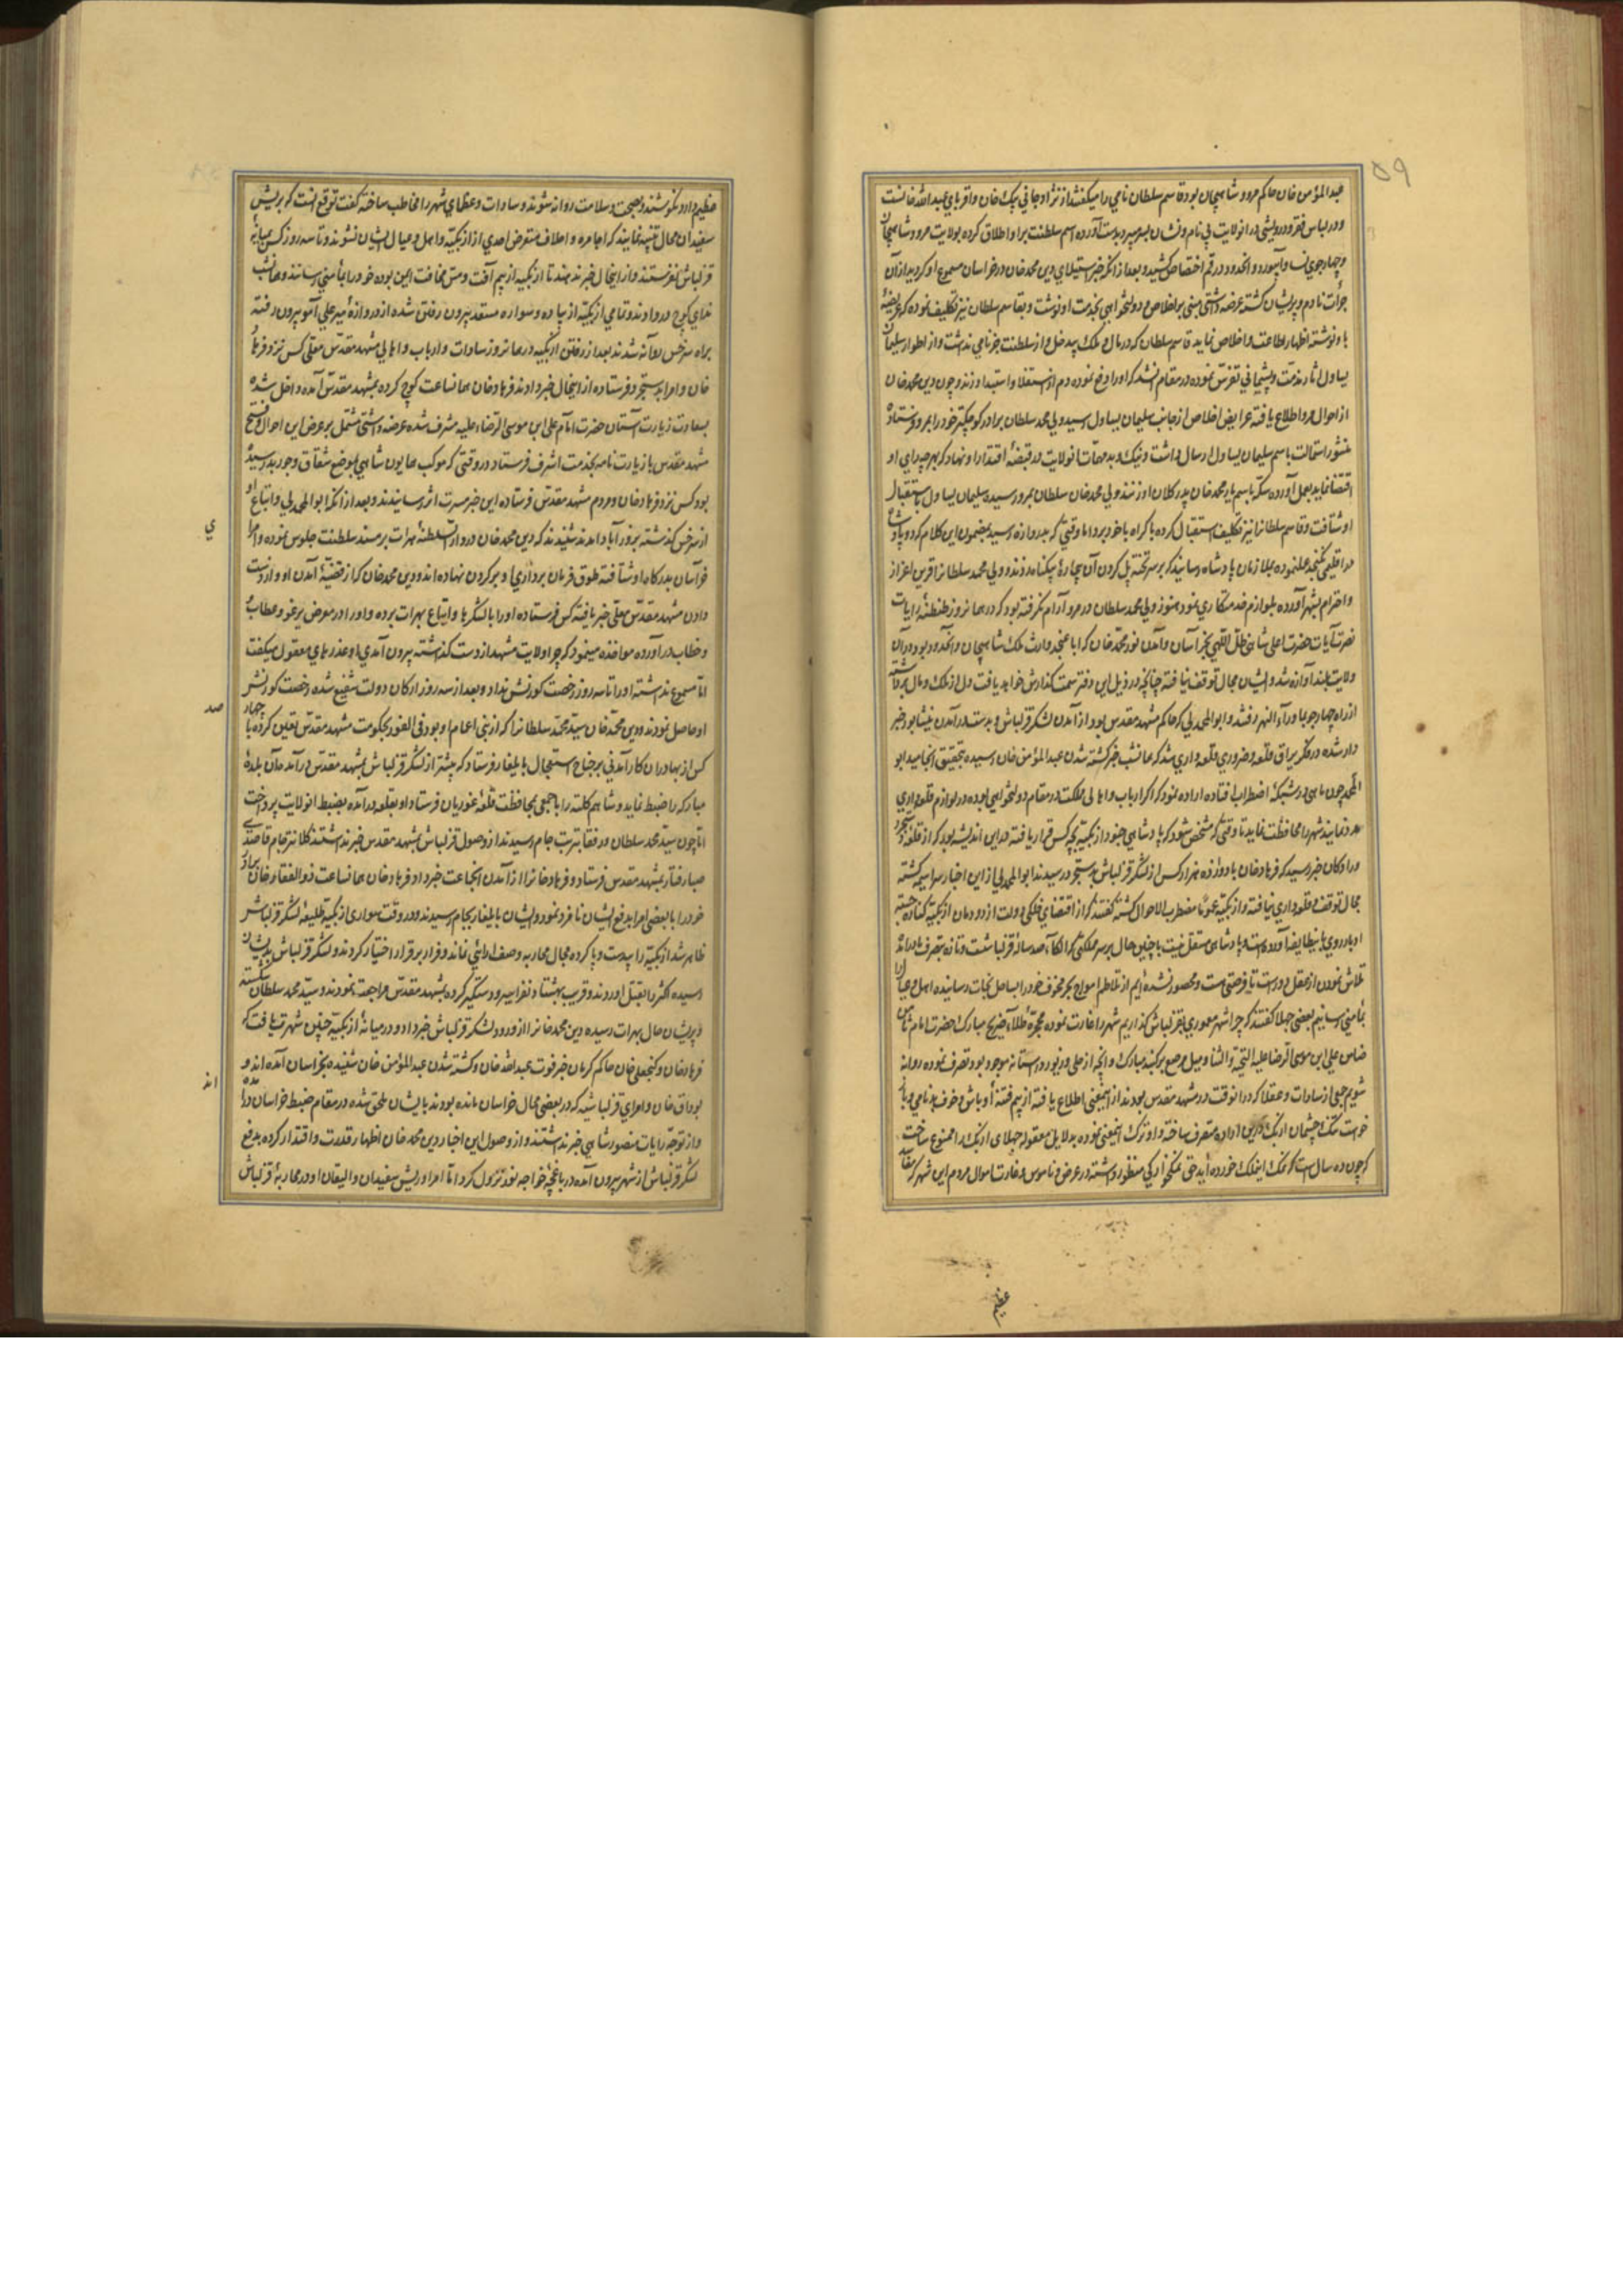 ۵۹
عبدالمؤمن خان حاکم مرو شاهیجان بود قاسم سلطان نامی را میگفتند از نژاد جانی بیک خان و اقربای عبدالله خانست
و در لباس فقر و درویشی در انولایت بی نام و نشان بسر میبرد بدست آورده اسم سلطنت بر او اطلاق کرده بولایت مرو شاهیجان
و چهارجوی و نسا و ابیورد و انحدود رقم اختصاص کشید و بعد از انکه خبر استیلای دین محمد خان در خراسان مسموع او کردید از آن
جرأت نادم و پریشان گشته عرضه داشتی مبنی بر اخلاص و دولتخواهی بخدمت او نوشت و بقاسم سلطان نیز تکلیف نموده که عریضه
باو نوشته اظهار اطاعت و اخلاص نماید قاسم سلطان که در مال و ملک بیدخل و از سلطنت جز نامی نداشت و از اطوار سلیمان
یساول اثار ندامت و پشیمانی تفرس نموده در مقام انشد که او را دفع نموده دم از استقلال و استبداد زند و چون دین محمد خان
از احوال مرو اطلاع یافته عرایض اخلاص از جانب سلیمان یساول رسید ولی محمد سلطان برادر کوچکتر خود را بمرو فرستاد
منشور استمالت باسم سلیمان یساول ارسال داشت و نیک و بد مهمات انولایت در قبضه اقتدار او نهاد که بهر چه رای او
اقتضا نماید بعمل آورده سکه باسم یار محمد خان پدر کلان او زنند ولی محمد خان سلطان بمرو رسیده سلیمان یساول باستقبال
او شتافت و قاسم سلطانرا نیز تکلیف استقبال کرده باکراه باخود برد اما وقتی که بدروازه رسید بمضمون این کلام که دو پادشاه
در اقلیمی نکنجد عملنموده بملازمان پادشاه رسانید که بر سر تخته پل کردن آن بیچاره بیکناه زدند و ولی محمد سلطانرا قرین اعزاز
و احترام بشهر آورده بلوازم خدمتکاری نمود هنوز ولی محمد سلطان در مرو آرام نکرفته بود که در همانروز طنطنه رایات
نصرت آیات حضرت اعلی شاهی ظل اللهی بخراسان و آمدن نور محمد خان که اباعنجد وارث ملک شاهیجان و انحدود بود در آن
ولایت بلند آوازه شد و ایشان مجال توقف نیافته چنانچه در ذیل این دفتر سمت گذارش خواهد یافت دل از ملک و مال برداشته
از راه چهارجو بماوراء النهر رفتند و ابوالمحمد بی که حاکم مشهد مقدس بود از آمدن لشکر قزلباش و بدست درآمدن نیشابور خبر
دار شده در فکر یراق قلعه و ضروری قلعه داری شد که همانشب خبر کشته شدن عبدالمؤمن خان رسیده بتحقیق انجامید ابو
المحمد چون ماهی در شبکه اضطراب افتاده اراده نمود که اکر ارباب و اهالی مملکت در مقام دولتخواهی بوده در لوازم قلعه داری
مدد نمایند شهر را محافظت نماید تا وقتی که مشخص شود که پادشاهی جنود ازبکیه بچه کس قرار یافته در این اندیشه بود که از قلعه سنجر
و رادکان خبر رسید که فرهاد خان با دوازده هزار کس از لشکر قزلباش بسنجر در رسیدند ابوالمحمد بی از این اخبار سراسیمه گشته
مجال توقف و قلعه داری نیافته و ازبکیه عموما مضطرب الاحوال گشته گفتند که از اقتضای فلکی دولت از دودمان ازبکیه کناره جسته
ادبار روی باینطایفه آورده است و پادشاهی مستقل نیست با چنین حال بر سر مملکتی که الکاء صد ساله قزلباشست و تازه بتصرف ما درآمده
تلاش نمودن از عقل دور است تا فرصتی هست و محصور نشده ایم از تلاطم امواج بحر مخوف خود را بساحل نجات رسانیده اهل و عیال را
بمأمنی رسانیم بعضی جهلا گفتند که چرا شهر معموری بقزلباش گذاریم شهر را غارت نموده محجره طلاء ضریح مبارک حضرت امام ثامن
ضامن علی ابن موسی الرضا علیه التحیة والثنا و میل مرصع بر گنبد مبارک و آنچه از حلی و زیور در آستانه موجود بود تصرف نموده روانه
شویم جمعی از سادات و عقلا که در انوقت در مشهد مقدس بودند از اینمعنی اطلاع یافته از بیم فتنه اوباش و خوف بدنامی و باز
خواست تنک چشمان ازبک را ازین اراده منصرف ساخته و او ترک اینمعنی نموده بدلایل معقوله جهلای ازبک را ممنوع ساخت
که چون ده سال است که نمک اینملک خورده اید حق نمکخوارکی منظور داشته در عرض و ناموس و غارت اموال مردم این شهر که مقام
عظیم
عظیم دارد نکوشند و بصحت و سلامت روانه شوند و سادات و عظمای شهر را مخاطب ساخته گفت توقع انست که بریش
سفیدان محال تنبیه نمایند که اجامره و اجلاف متعرض احدی از ازبکیه و اهل و عیال ایشان نشوند و تا سه روز کس بمیانه
قزلباش نفرستند و از اینحال خبر ندهند تا ازبکیه از بیم آفت و مس مخافت ایمن بوده خود را بمأمنی رسانند و همانشب
ندای کوچ در داوند و تمامی ازبکیه از پیاده و سواره مستعد بیرون رفتن شده از دروازه میر علی آمو بیرون رفته
براه سرخس روانه شدند بعد از رفتن ازبکیه در همانروز سادات و ارباب و اهالی مشهد مقدس معلی کس نزد فرهاد
خان و امرا بسنجر فرستاده از اینحال خبر دادند فرهاد خان همانساعت کوچ کرده بمشهد مقدس آمده داخل شده
بسعادت زیارت آستان حضرت امام علی ابن موسی الرضاء علیه مشرف شده عرضه داشتی مشتمل بر عرض این احوال و فتح
مشهد مقدس با زیارت نامه بخدمت اشرف فرستاد در وقتی که موکب همایون شاهی بموضع شقاق و جوربد رسیده
بود کس نزد فرهاد خان و مردم مشهد مقدس فرستاده این خبر مسرت اثر رسانیدند و بعد از انکه ابوالمحمد بی و اتباع او
از سرخس گذشته بزورآباد آمدند شنیدند که دین محمد خان در دارالسلطنه هرات بر مسند سلطنت جلوس نموده و امرا
ی
خراسان بدرگاه او شتافته طوق فرمان برداری او بر گردن نهاده اند و دین محمد خان که از قضیه آمدن او و از دست
دادن مشهد مقدس معلی خبر یافته کس فرستاده او را با لشکرها و اتباع بهرات برده و او را در معرض یرغو و عطاب
و خطاب درآورده مواخذه مینمود که چرا ولایت مشهد از دست گذاشته بیرون آمدی او عذرهای معقول میگفت
اما مسموع نداشته او را تا سه روز رخصت کورنش نداد و بعد از سه روز ارکان دولت شفیع شده رخصت کورنش
او حاصل نمودند و دین محمد خان سید محمد سلطانرا که از بنی اعمام او بود فی الفور بحکومت مشهد مقدس تعیین کرده با چهار
صد
کس از بهادران کارآمدنی بر جناح استعجال بایلغار فرستاد که پیشتر از لشکر قزلباش بمشهد مقدس درآمده آن بلده
مبارکه را ضبط نماید و شاهم کلته را با جمعی بمحافظت قلعه غوریان فرستاد او بقلعه درآمده بضبط انولایت پرداخت
اما چون سید محمد سلطان و رفقا بتربت جام رسیدند از وصول قزلباش بمشهد مقدس خبر نداشتند کلانتر جام قاصدی
صبا رفتار بمشهد مقدس فرستاد و فرهاد خانرا از آمدن انجماعت خبر داد فرهاد خان همانساعت ذوالفقار خان برادر
خود را با بعضی امرا بدفع ایشان نامزد نمود و ایشان بایلغار بجام رسیدند و در وقت سواری ازبکیه طلیعه لشکر قزلباش
ظاهر شد ازبکیه را بیدست و پا کرده مجال محاربه و صف آرائی نماند و فرار بر قرار اختیار کردند و لشکر قزلباش بدیشان
رسیده اکثر را بقتل آوردند و قریب بهشتاد نفر اسیر و دستگیر کرده بمشهد مقدس مراجعت نمودند و سید محمد سلطان شکسته
و پریشان حال بهرات رسیده دین محمد خانرا از ورود لشکر قزلباش خبر داد و در میانه ازبکیه چنین شهرت یافت که
فرهاد خان و گنجعلی خان حاکم کرمان خبر فوت عبدالله خان و کشته شدن عبدالمؤمن خان شنیده بخراسان آمده اند و
بوداق خان و امرای قزلباشیه که در بعضی محال خراسان مانده بودند بایشان ملحق شده در مقام ضبط خراسان درآمده
اند
و از توجه رایات منصور شاهی خبر نداشتند و از وصول این اخبار دین محمد خان اظهار قدرت و اقتدار کرده بدفع
لشکر قزلباش از شهر بیرون آمده در باغچه خواجه نفود نزول کرد اما امرا و ریش سفیدان و الیقان او در محاربه قزلباش